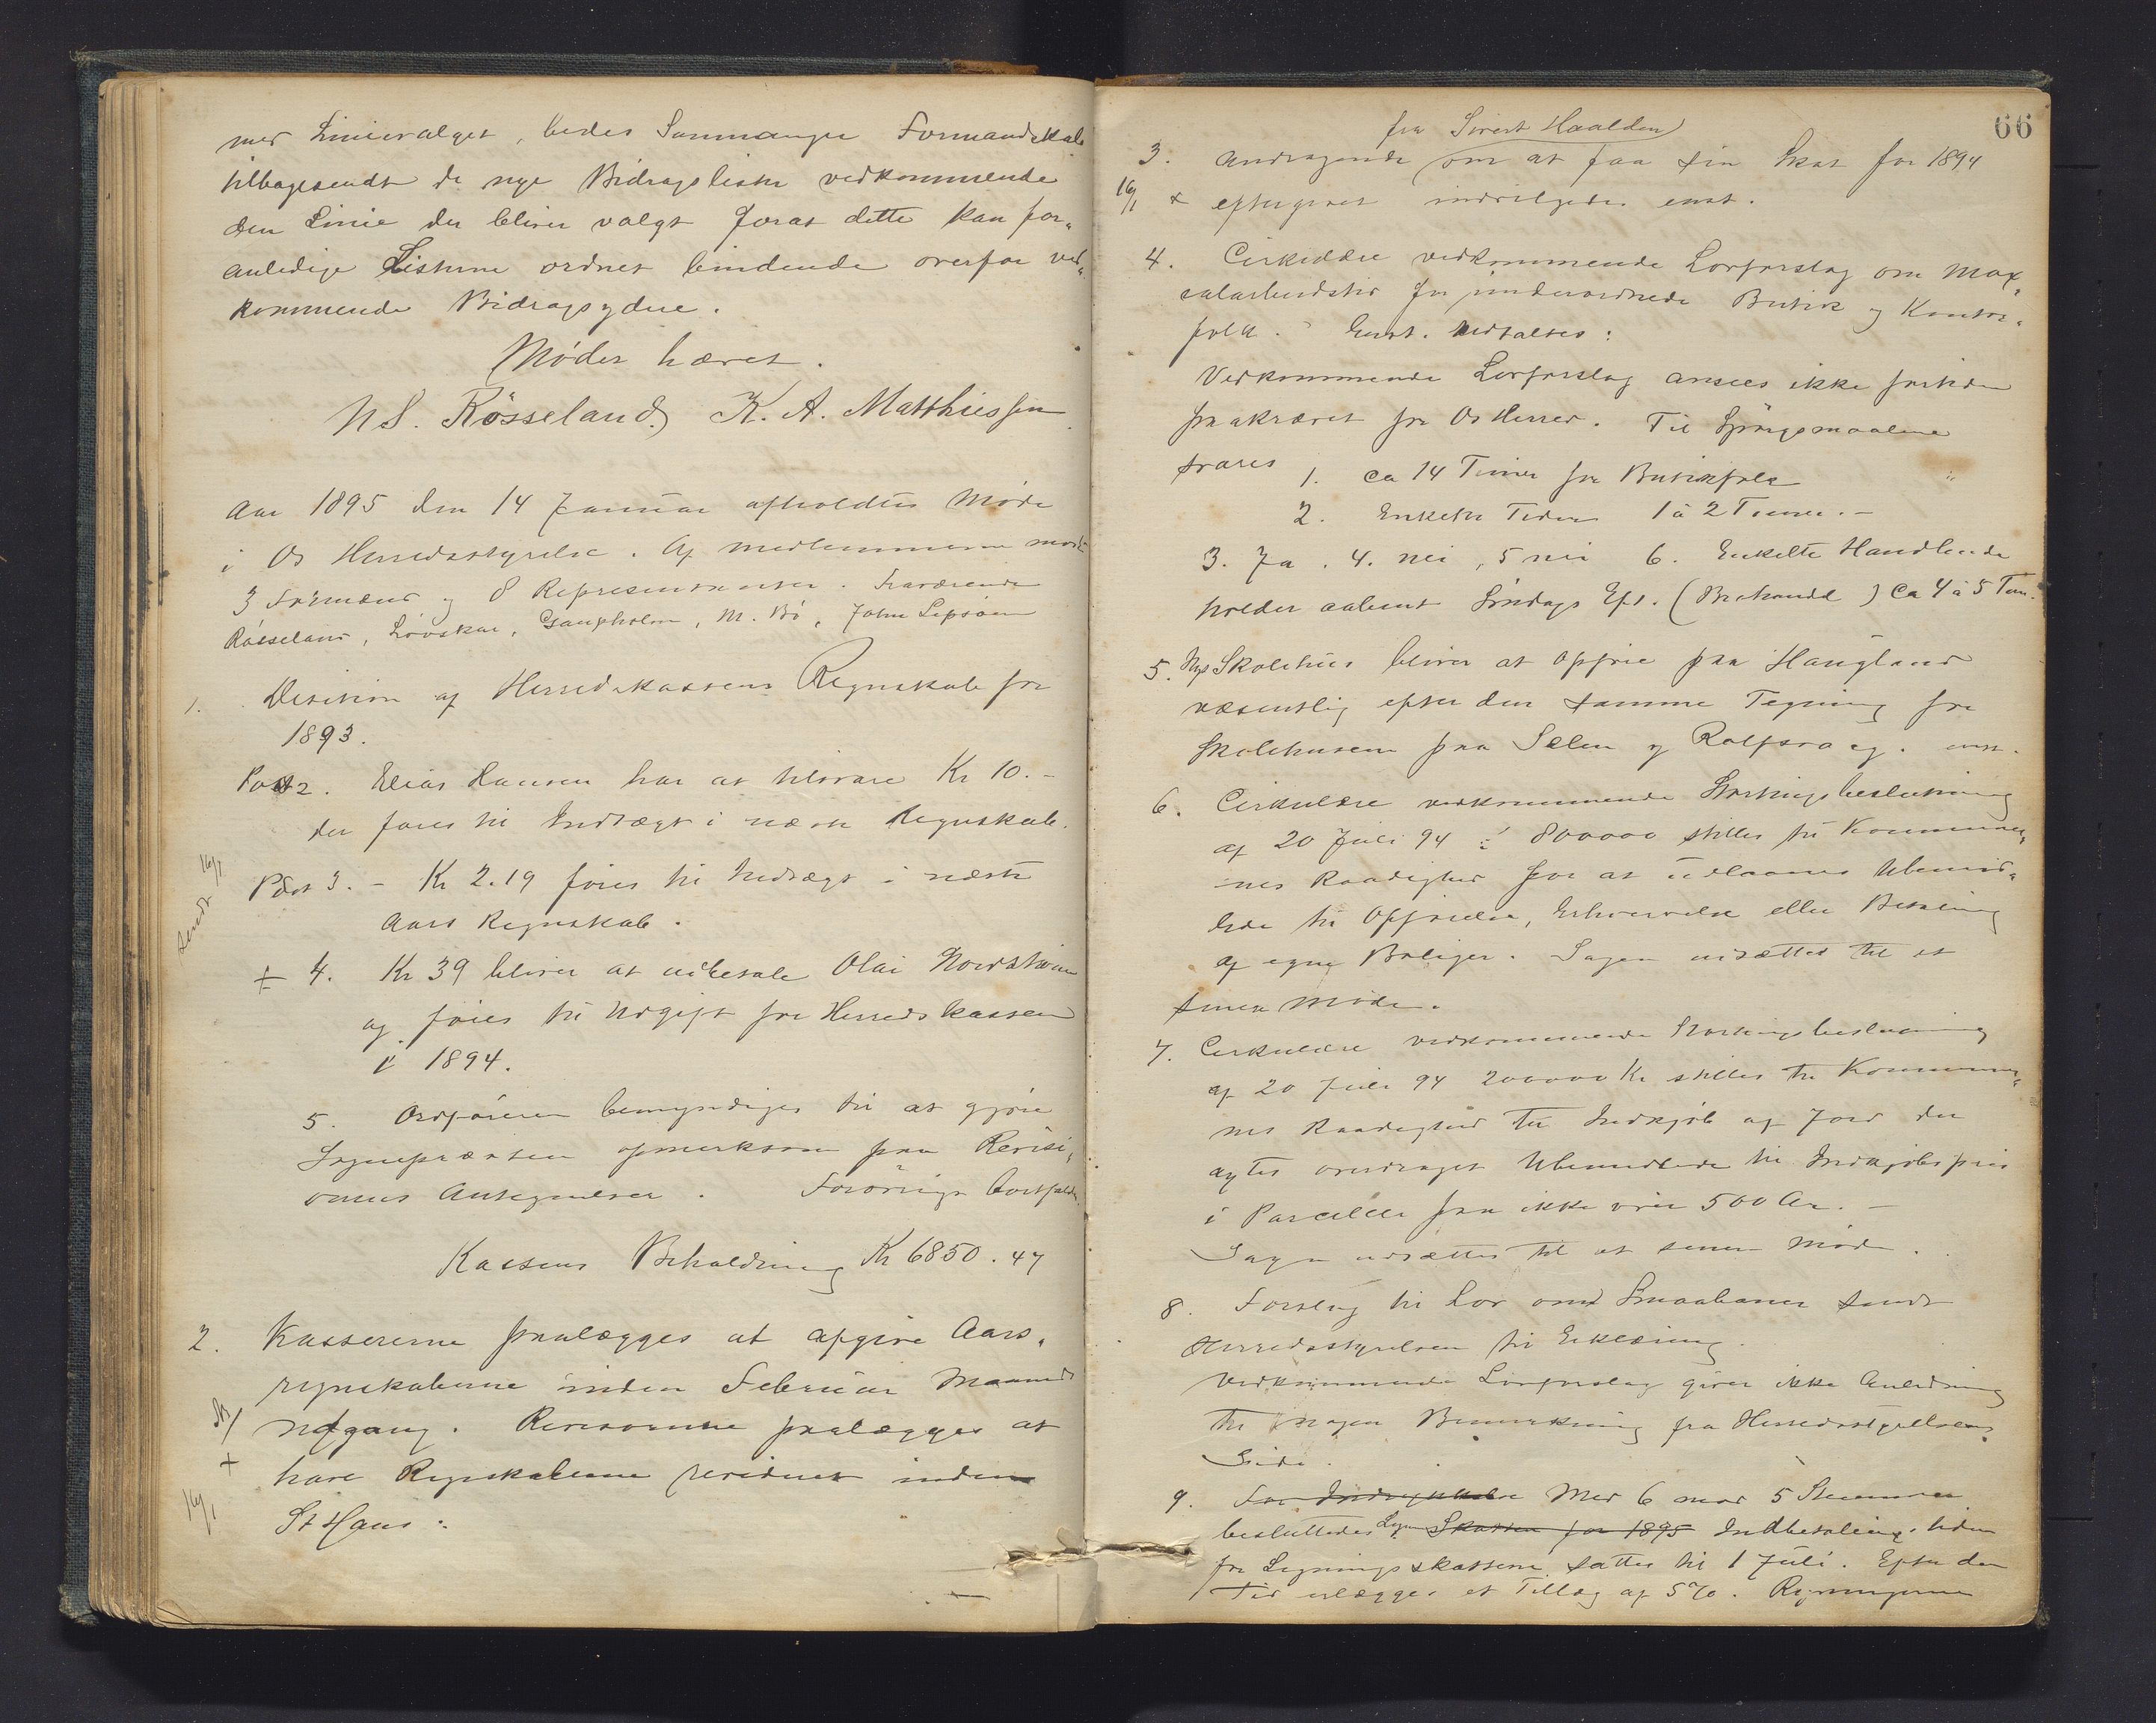 med Linievalget, bedes Samnanger Formandskab
tilbagesendt de nye Bidragslister vedkommende
den Linie der bliver valgt forat dette kan for„
anledige Listerne ordnet bindende overfor ved„
kommende Bidragsydere.
Møder hævet.
N S. Røsseland. K. A. Matthiessen
Aar 1895 den 14 Januar afholdtes Møde
i Os Herredsstyrelse. Af medlemmerne mødte
3 Formænd og 8 Representanter. Fraværende
Røsseland, Løvskar, Gaupholm, M. Bø, John Lepsøen
1. Desision af Herredskassens Regnskab for
1893.
Post 2. Elias Hansen har at tilsvare Kr 10.-
der føres til Indtægt i næste Regnskab.
Sendt 16/1
Post 3. - Kr 2.19 føres til Indtægt i næste
Aars Regnskab.
+ 4. Kr 39 bliver at udbetale Olai Nordstrøm
og føres til Udgift for Herredskassen
i 1894.
5. Ordføreren bemyndiges til at gjøre
Sognepræsten opmerksom paa Revisi„
onens Antegnelser. Forøvrigt bortfalder
Kassens Beholdning Kr 6850.47
2. Kassererne paalægges at afgive Aars„
regnskaberne inden Februar Maaneds
Udgang. Revisorerne paalægges at
+ have Regnskaberne revideret inden
16/1
St Hans.
66
fra Sivert Haalden
3. Andragende om at faa sin Skat for 1894
16/1 + eftergivet indvilgedes enst.
4. Cirkulære vedkommende Lovforslag om Max„
ealarbeidstid for underordnede Butik og Kontor„
folk. Enst. vedtaltes:
Vedkommende Lovforslag ansees ikke for tiden
paakrævet for Os Herred. Til Spørgsmaalene
svares 1. ca 14 Timer for Butikfolk
2. Enkelte Tider 1 à 2 Timer. -
3. Ja. 4. nei, 5 nei 6. Enkelte Handlende
holder aabent Søndags Eft. ( ) Ca 4 à 5 Tim.
5. Nyt Skolehus bliver at opføre paa Haugland
væsentlig efter den samme Tegning for
Skolehusene paa Selen og Rolfsvaag. enst.
6. Cirkulære vedkommende Storthingsbeslutning
af 20 Juli 94 : 800000 stilles til Kommuner„
nes Raadighed for at udlaanes Ubemid„
lede til Opførelse, Erhvervelse eller Bevaring
af egne Boliger. Sagen udsættes til et
senere Møde.
7. Cirkulære vedkommende Storthingsbeslutning
af 20 Juli 94 200000 Kr stilles til Kommuner„
nes Raadighed til Indkjøb af Jord der
agtes overdraget Ubemidlede til Indkjøbspris
i Parceller paa ikke over 500 Ar. -
Sagen udsættes til et senere Møde.
8. Forslag til Lov om Smaabaner sendt
Herredsstyrelsen til Erklæring.
Vedkommende Lovforslag giver ikke Anledning
til nogen Bemerkning fra Herredsstyrelsens
Side.
9. For Med 6 mod 5 Stemmer
besluttedes Skatten for 1895 Indbetalings tiden
for Ligningsskatten sættes til 1 Juli. Efter den
Tid erlægges et Tillæg af 5%.